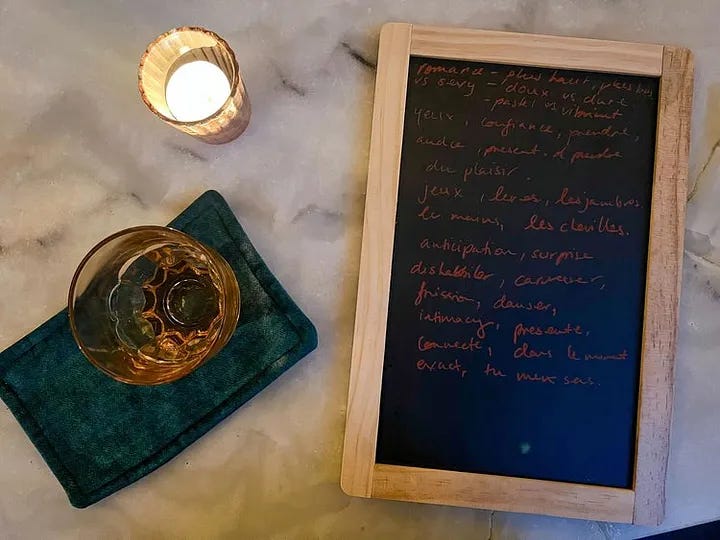 romance - plus haut, plus bas
vs sexy - doux vs dure
- pastel vs vibrant
yeux, confiance, prendre,
audace, present. à prendre
du plaisir.
jeux, levres, les jambes,
les mains, les chevilles.
anticipation, surprise
deshabiller, caresser,
frisson, danser,
intimacy, presente,
connecté, dans le moment
exact, tu